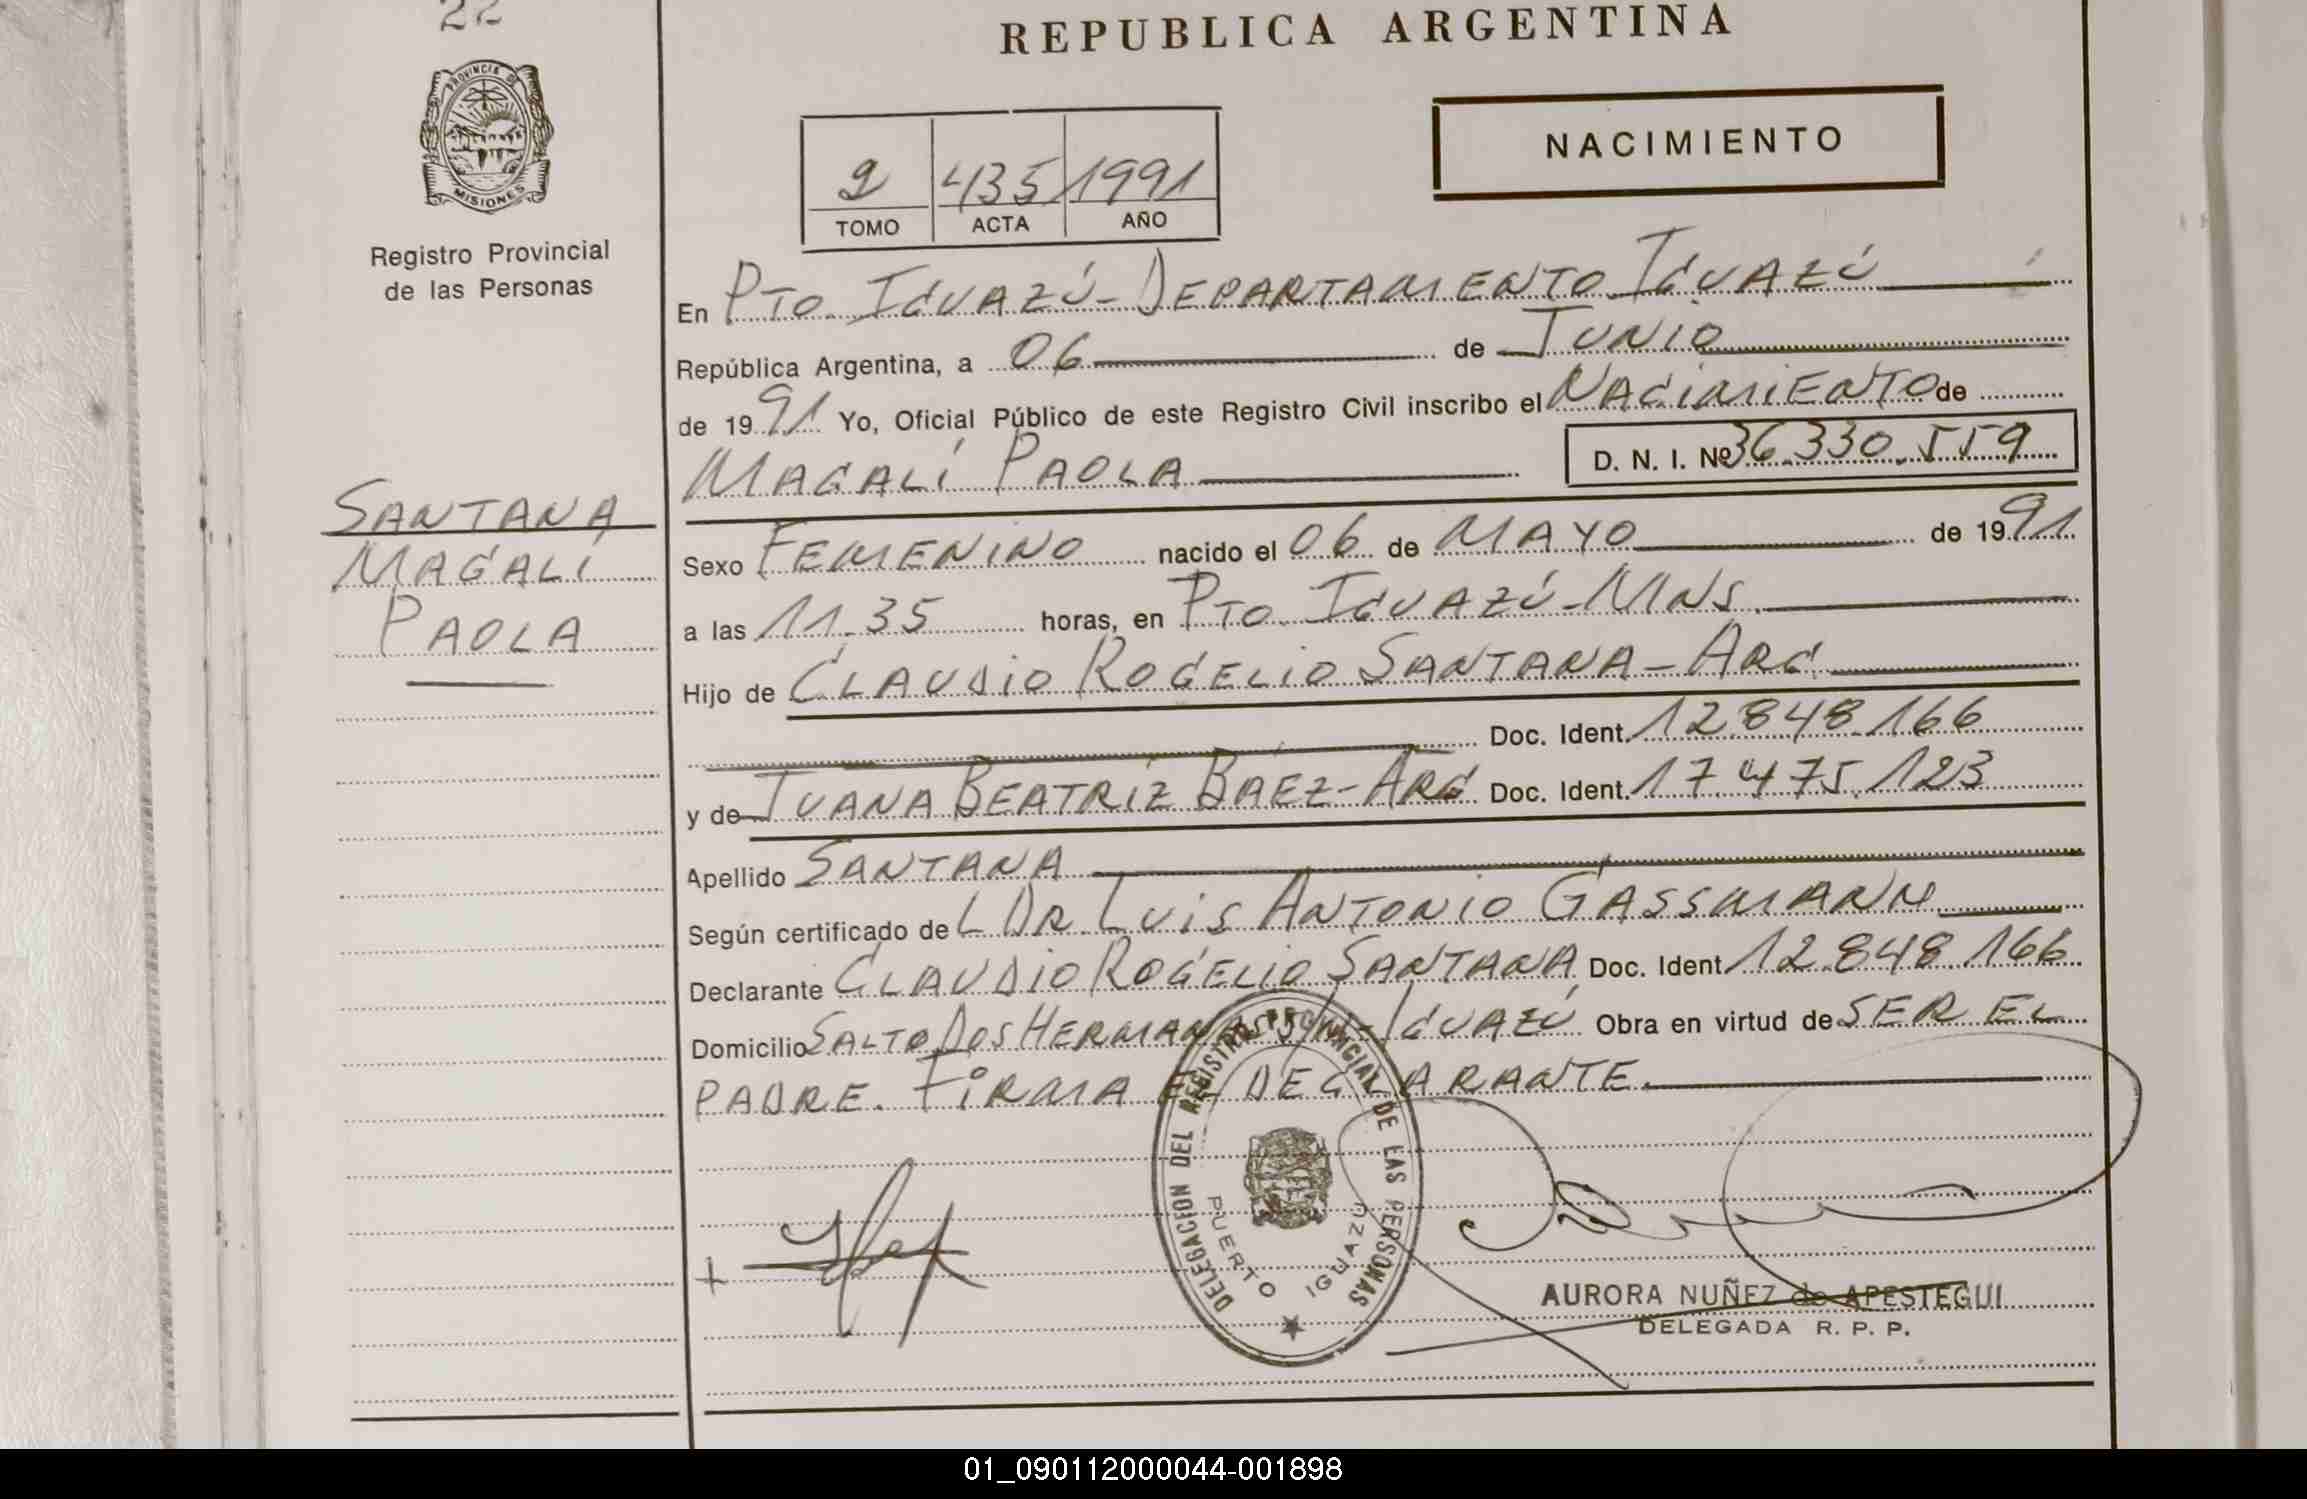 22
REPUBLICA ARGENTINA
PROVINCIA DE
MISIONES
Registro Provincial
de las Personas
NACIMIENTO
2 435 1991
TOMO ACTA AÑO
En PTO. IGUAZÚ - DEPARTAMENTO IGUAZÚ
República Argentina, a 06 de JUNIO
de 1991 Yo, Oficial Público de este Registro Civil inscribo el NACIMIENTO de
MAGALÍ PAOLA D. N. I. Nº 36.330.559
SANTANA
MAGALÍ
PAOLA
Sexo FEMENINO nacido el 06 de MAYO de 1991
a las 11.35 horas, en PTO. IGUAZÚ - MNS.
Hijo de CLAUDIO ROGELIO SANTANA - ARG.
Doc. Ident. 12.848.166
y de JUANA BEATRÍZ BÁEZ - ARG Doc. Ident. 17.475.123
Apellido SANTANA
Según certificado de L DR. LUIS ANTONIO GASSMANN
Declarante CLAUDIO ROGELIO SANTANA Doc. Ident. 12.848.166
Domicilio SALTO DOS HERMANAS S/N - IGUAZÚ Obra en virtud de SER EL
PADRE. FIRMA EL DECLARANTE.
DELEGACION DEL REGISTRO PROVINCIAL DE LAS PERSONAS
PUERTO IGUAZU
AURORA NUÑEZ de APESTEGUI
DELEGADA R. P. P.
01_090112000044-001898